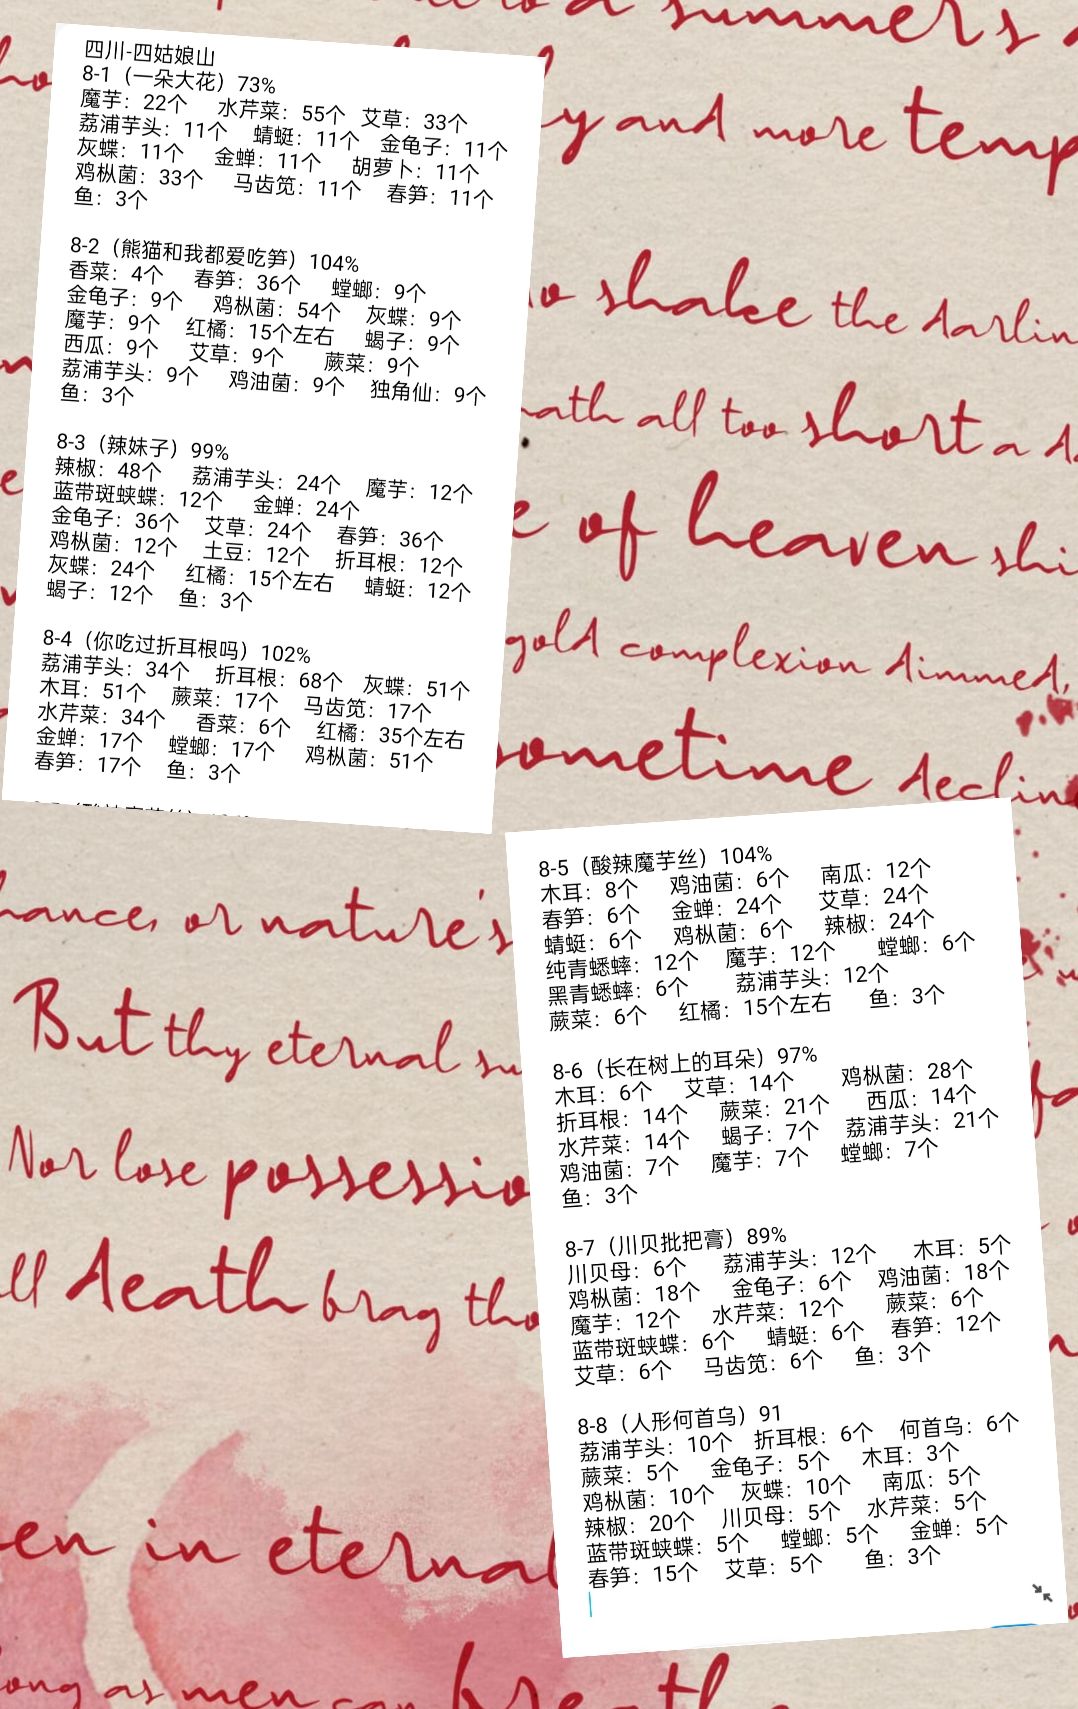 summer's
四川-四姑娘山
8-1（一朵大花）73%
魔芋：22个 水芹菜：55个 艾草：33个
荔浦芋头：11个 蜻蜓：11个 金龟子：11个
灰蝶：11个 金蝉：11个 胡萝卜：11个
鸡枞菌：33个 马齿笕：11个 春笋：11个
鱼：3个
and more
8-2（熊猫和我都爱吃笋）104%
香菜：4个 春笋：36个 螳螂：9个
金龟子：9个 鸡枞菌：54个 灰蝶：9个
魔芋：9个 红橘：15个左右 蝎子：9个
西瓜：9个 艾草：9个 蕨菜：9个
荔浦芋头：9个 鸡油菌：9个 独角仙：9个
鱼：3个
shake the
all too short a
8-3（辣妹子）99%
辣椒：48个 荔浦芋头：24个 魔芋：12个
蓝带斑蛱蝶：12个 金蝉：24个
金龟子：36个 艾草：24个 春笋：36个
鸡枞菌：12个 土豆：12个 折耳根：12个
灰蝶：24个 红橘：15个左右 蜻蜓：12个
蝎子：12个 鱼：3个
of heaven
8-4（你吃过折耳根吗）102%
荔浦芋头：34个 折耳根：68个 灰蝶：51个
木耳：51个 蕨菜：17个 马齿笕：17个
水芹菜：34个 香菜：6个 红橘：35个左右
金蝉：17个 螳螂：17个 鸡枞菌：51个
春笋：17个 鱼：3个
gold complexion dimmed,
sometime
or nature's
But thy eternal
Nor lose
death brag
8-5（酸辣魔芋丝）104%
木耳：8个 鸡油菌：6个 南瓜：12个
春笋：6个 金蝉：24个 艾草：24个
蜻蜓：6个 鸡枞菌：6个 辣椒：24个
纯青蟋蟀：12个 魔芋：12个 螳螂：6个
黑青蟋蟀：6个 荔浦芋头：12个
蕨菜：6个 红橘：15个左右 鱼：3个
8-6（长在树上的耳朵）97%
木耳：6个 艾草：14个 鸡枞菌：28个
折耳根：14个 蕨菜：21个 西瓜：14个
水芹菜：14个 蝎子：7个 荔浦芋头：21个
鸡油菌：7个 魔芋：7个 螳螂：7个
鱼：3个
8-7（川贝批把膏）89%
川贝母：6个 荔浦芋头：12个 木耳：5个
鸡枞菌：18个 金龟子：6个 鸡油菌：18个
魔芋：12个 水芹菜：12个 蕨菜：6个
蓝带斑蛱蝶：6个 蜻蜓：6个 春笋：12个
艾草：6个 马齿笕：6个 鱼：3个
8-8（人形何首乌）91
荔浦芋头：10个 折耳根：6个 何首乌：6个
蕨菜：5个 金龟子：5个 木耳：3个
鸡枞菌：10个 灰蝶：10个 南瓜：5个
辣椒：20个 川贝母：5个 水芹菜：5个
蓝带斑蛱蝶：5个 螳螂：5个 金蝉：5个
春笋：15个 艾草：5个 鱼：3个
in eternal
as men can